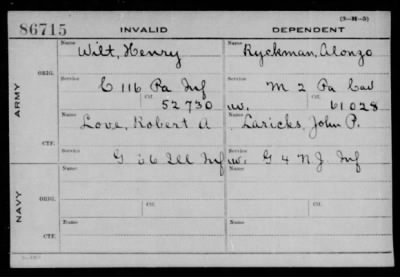 (3-H-5)
86715 INVALID DEPENDENT
Name Name
Wilt, Henry Ryckman, Alonzo
ORIG. Service Service
C 116 Pa Inf M 2 Pa Cav
Ctf. Ctf.
52 730 W. 61028
ARMY
Name Name
Love, Robert A Laricks, John P.
CTF. Service Service
G 36 Ill Inf W. G 4 N J Inf
Name Name
NAVY
ORIG. Ctf. Ctf.
Name Name
CTF.